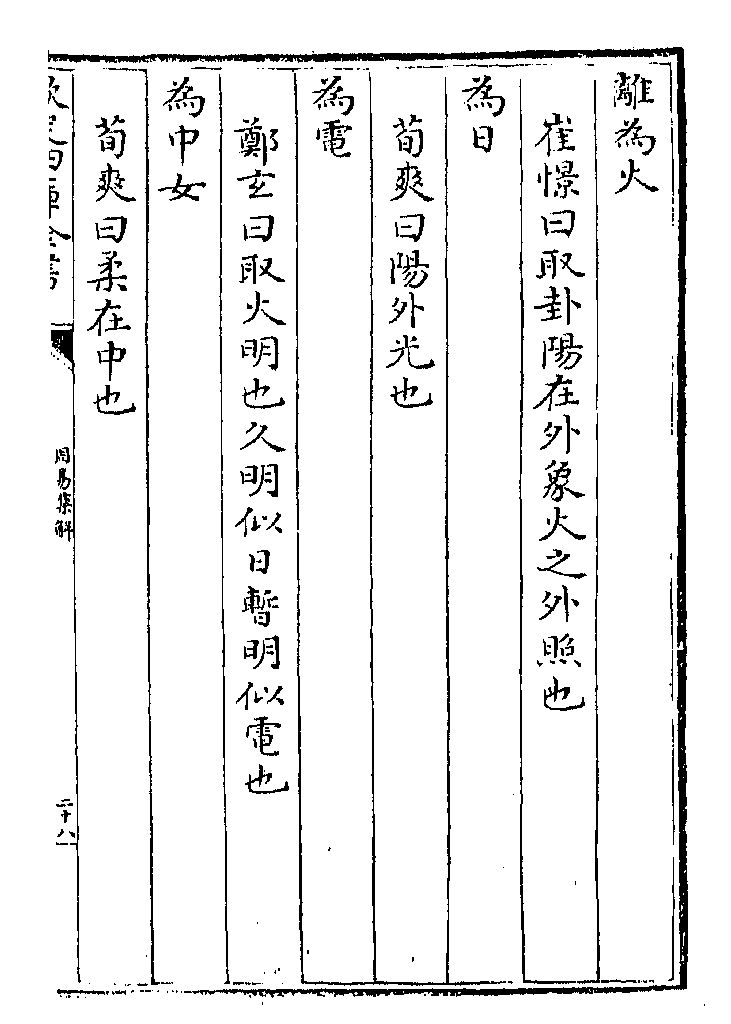 離為火
崔憬曰取卦陽在外象火之外照也
為日
荀爽曰陽外光也
為電
鄭玄曰取火明也久明似日暫明似電也
為中女
荀爽曰柔在中也
欽定四庫全書
周易集解
二十八